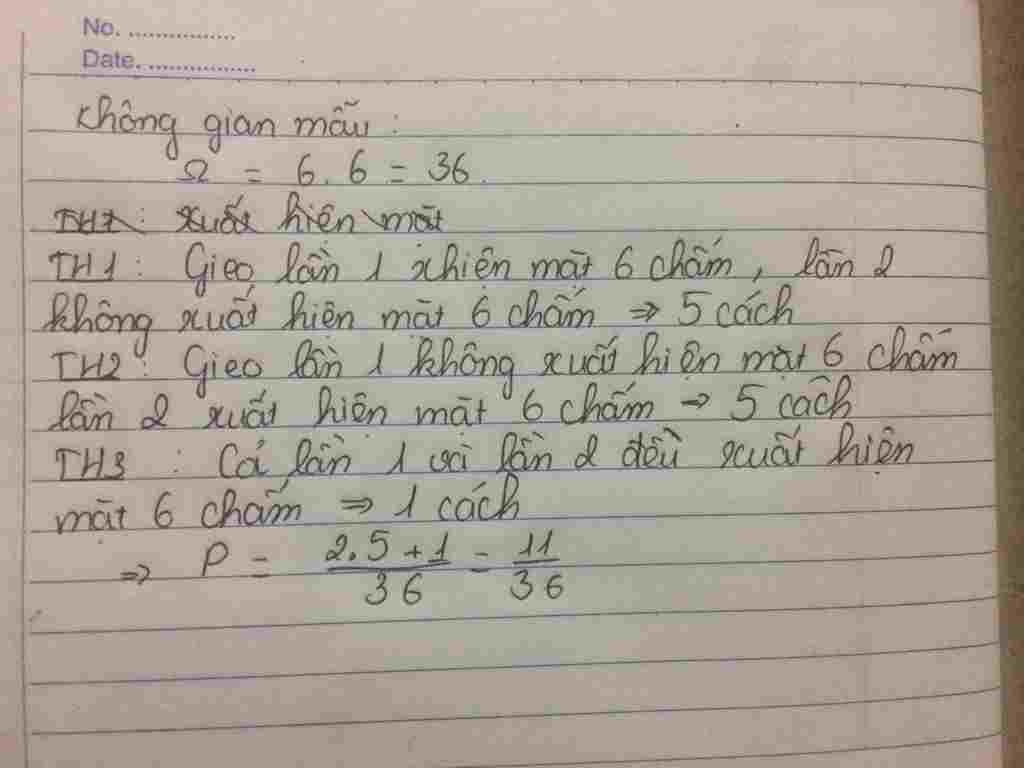 No. ................
Date. ................
Không gian mẫu :
Ω = 6 . 6 = 36.
TH1 : xuất hiện mặt
TH1 : Gieo lần 1 xhiện mặt 6 chấm, lần 2
không xuất hiện mặt 6 chấm ⇒ 5 cách
TH2 : Gieo lần 1 không xuất hiện mặt 6 chấm
lần 2 xuất hiện mặt 6 chấm → 5 cách
TH3 : Cả lần 1 và lần 2 đều xuất hiện
mặt 6 chấm ⇒ 1 cách
⇒ P = 2.5+1/36 = 11/36